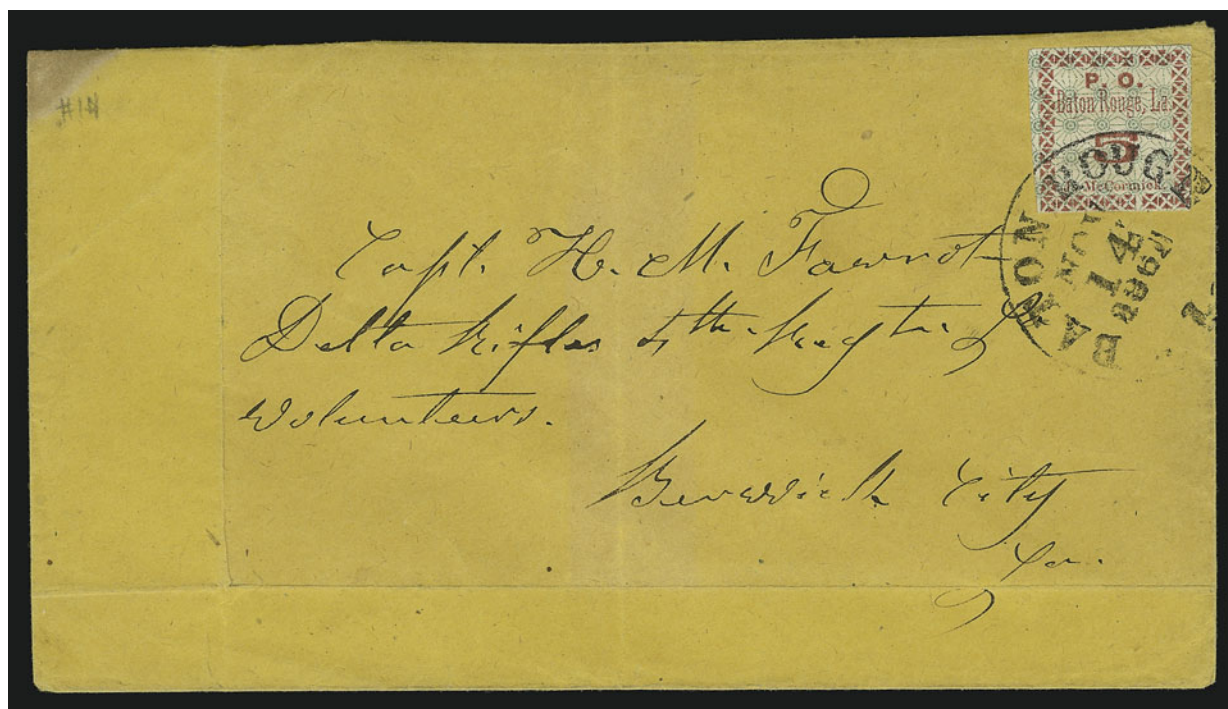 #14
P. O.
Baton Rouge, La.
5
J. McCormick.
BATON ROUGE La
NOV
14
1862
Capt. H. M. Favrot
Delta Rifles 4th Regt. of
Volunteers.
Berwick City
La.